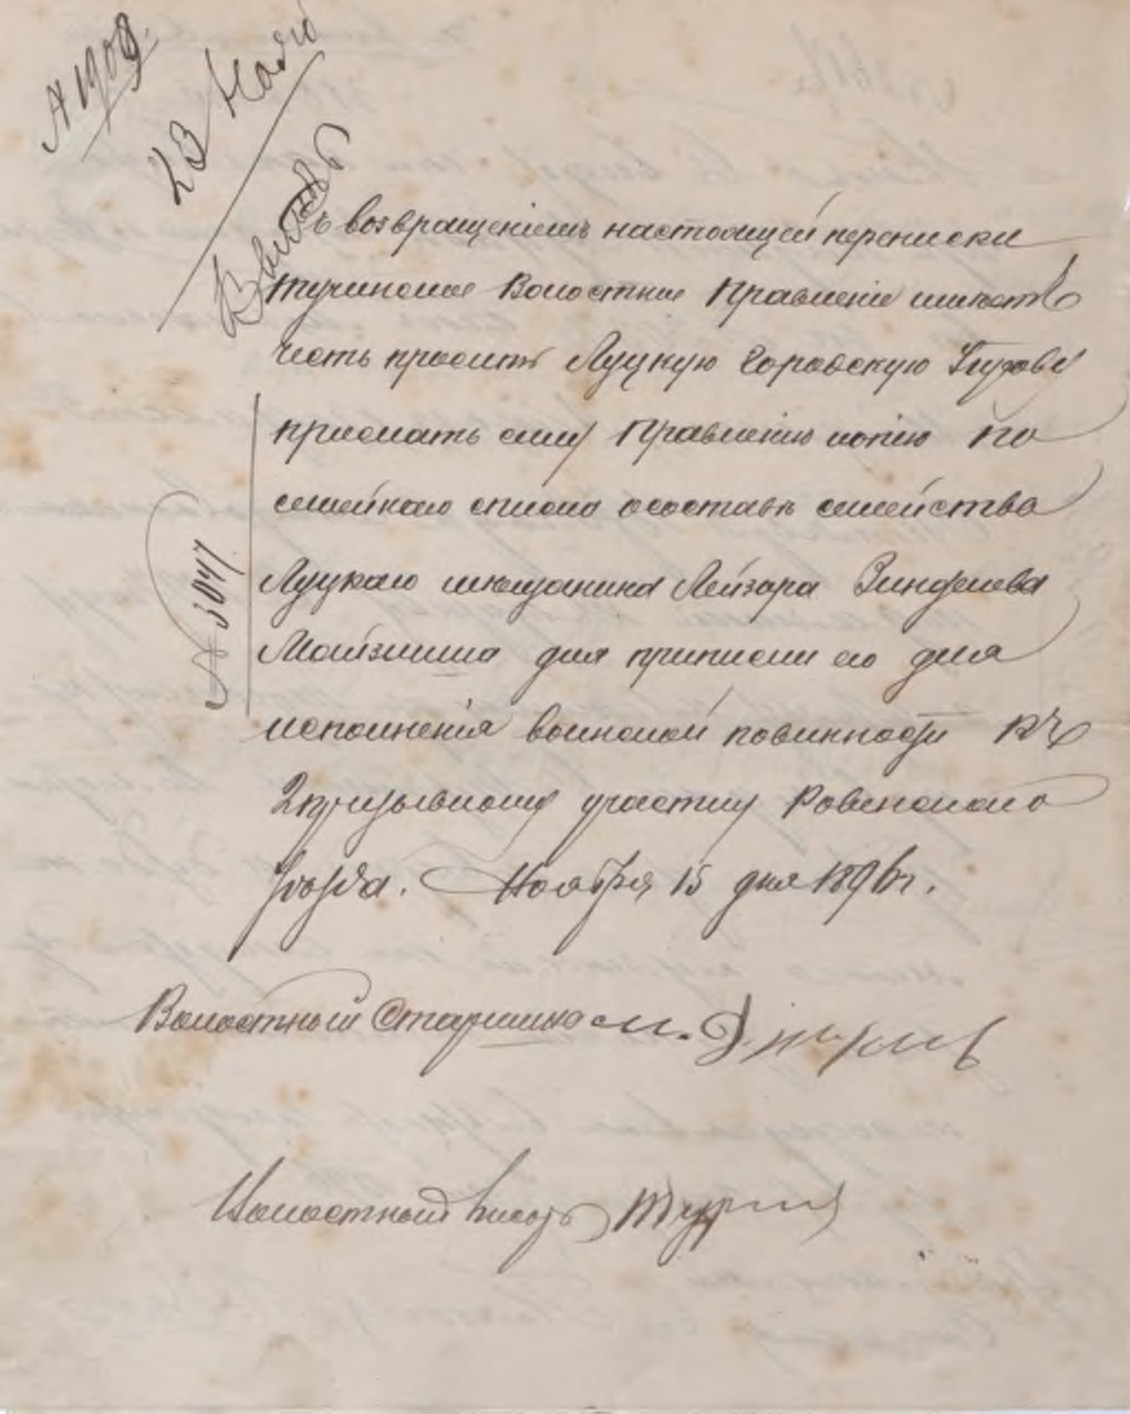 № 1909.
23 Нояб
Съ возвращеніемъ настоящей переписки
Тучинское Волостное Правленіе имѣетъ
честь просить Луцкую Городскую Управу
прислать сему Правленію копію по
семейнаго списка о составѣ семейства
Луцкаго мѣщанина Лейзора Зинделева
Майзлиша для приписки его для
исполненія воинской повинности къ
2 призывному участку Ровенскаго
уѣзда. Ноября 15 дня 1896 г.
№ 3047
Волостный Старшина
Волостный Писарь